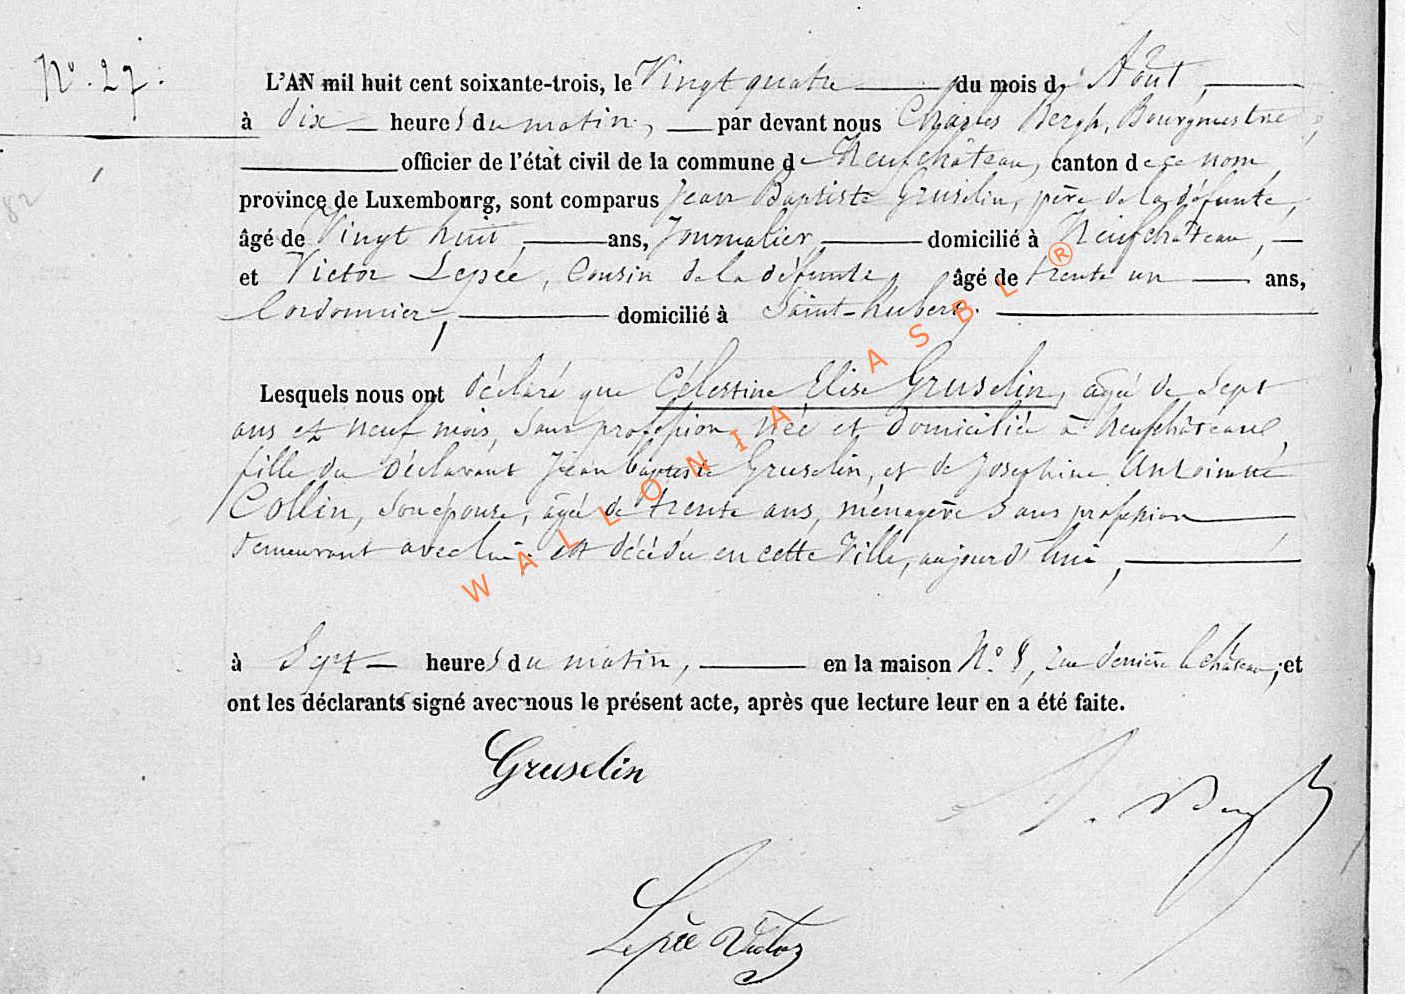 N° 27.
L'AN mil huit cent soixante-trois, le Vingt quatre du mois d' Août,
à dix heures du matin, par devant nous Charles Bergh, Bourgmestre,
officier de l'état civil de la commune de Neufchâteau, canton de ce nom,
province de Luxembourg, sont comparus Jean Baptiste Gruselin, père de la défunte,
âgé de Vingt huit ans, Journalier, domicilié à Neufchâteau,
et Victor Lepée, Cousin de la défunte, âgé de trente un ans,
Cordonnier, domicilié à Saint-hubert.
Lesquels nous ont déclaré que Célestine Elise Gruselin, agée de Sept
ans et neuf mois, Sans profession, née et domiciliée à Neufchâteau,
fille du déclarant Jean baptiste Gruselin, et de Joséphine Antoinette
Collin, son épouse, agée de trente ans, ménagère sans profession
demeurant avec lui, est décédée en cette Ville, aujourd'hui,
à Sept heures du matin, en la maison N° 8, rue derrière le château, et
ont les déclarants signé avec nous le présent acte, après que lecture leur en a été faite.
Gruselin
Bergh
Lepée Victor
WALLONIA ASBL ®